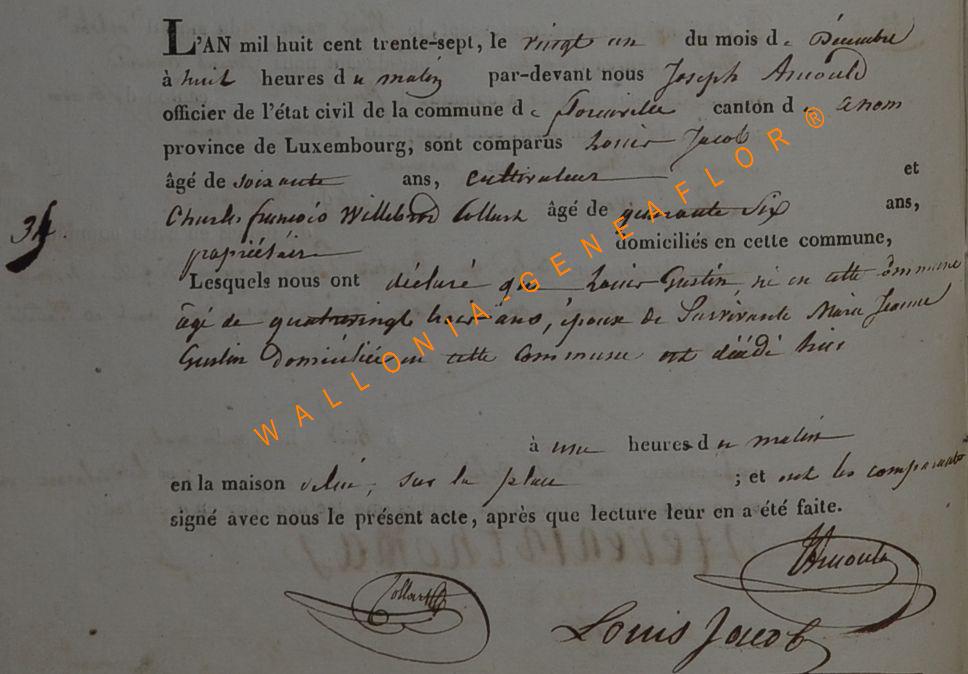 L'AN mil huit cent trente-sept, le vingt un du mois de Décembre
à huit heures du matin par-devant nous Joseph Arnould
officier de l'état civil de la commune de Florenville canton de
province de Luxembourg, sont comparus Louis Jacob
âgé de soixante ans, cultivateur et
Charles françois Willebrod Collart âgé de quarante Six ans,
propriétaire domiciliés en cette commune,
34.
Lesquels nous ont déclaré que Louis Gustin né en cette Commune
âgé de quatrevingt trois ans, époux de Survivante Marie Jeanne
Gustin domiciliée en cette Commune est décédé hier
à une heures du matin
en la maison sur la place ; et ont les comparants
signé avec nous le présent acte, après que lecture leur en a été faite.
JArnould
Collart
Louis Jacob
WALLONIA-GENEAFLOR ®